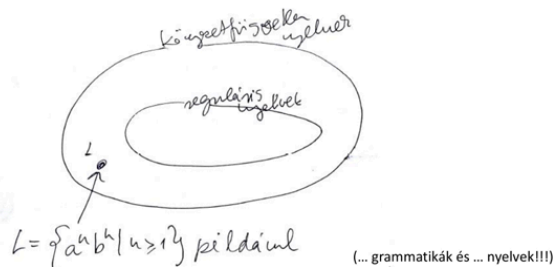 környezetfüggetlen
nyelvek
reguláris
nyelvek
L
L = {aⁿbⁿ | n ≥ 1} például
(... grammatikák és ... nyelvek!!!)